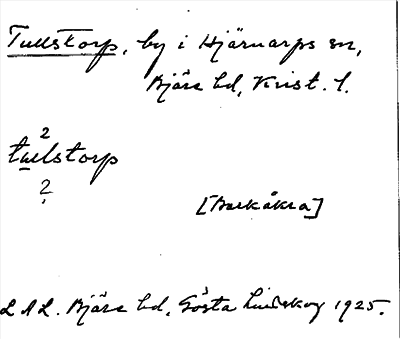 Tullstorp, by i Hjärnarps sn,
Bjäre hd, Krist. l.
2
tulstorp
2
[Barkåkra]
L A L. Bjäre hd, Gösta Lindskog 1925.